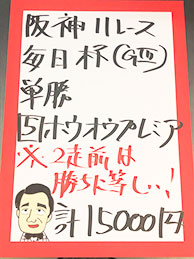 阪神11レース
毎日杯(GⅢ)
単勝
5ホウオウプレミア
※2走前は
勝ちに等しい!
計15000円